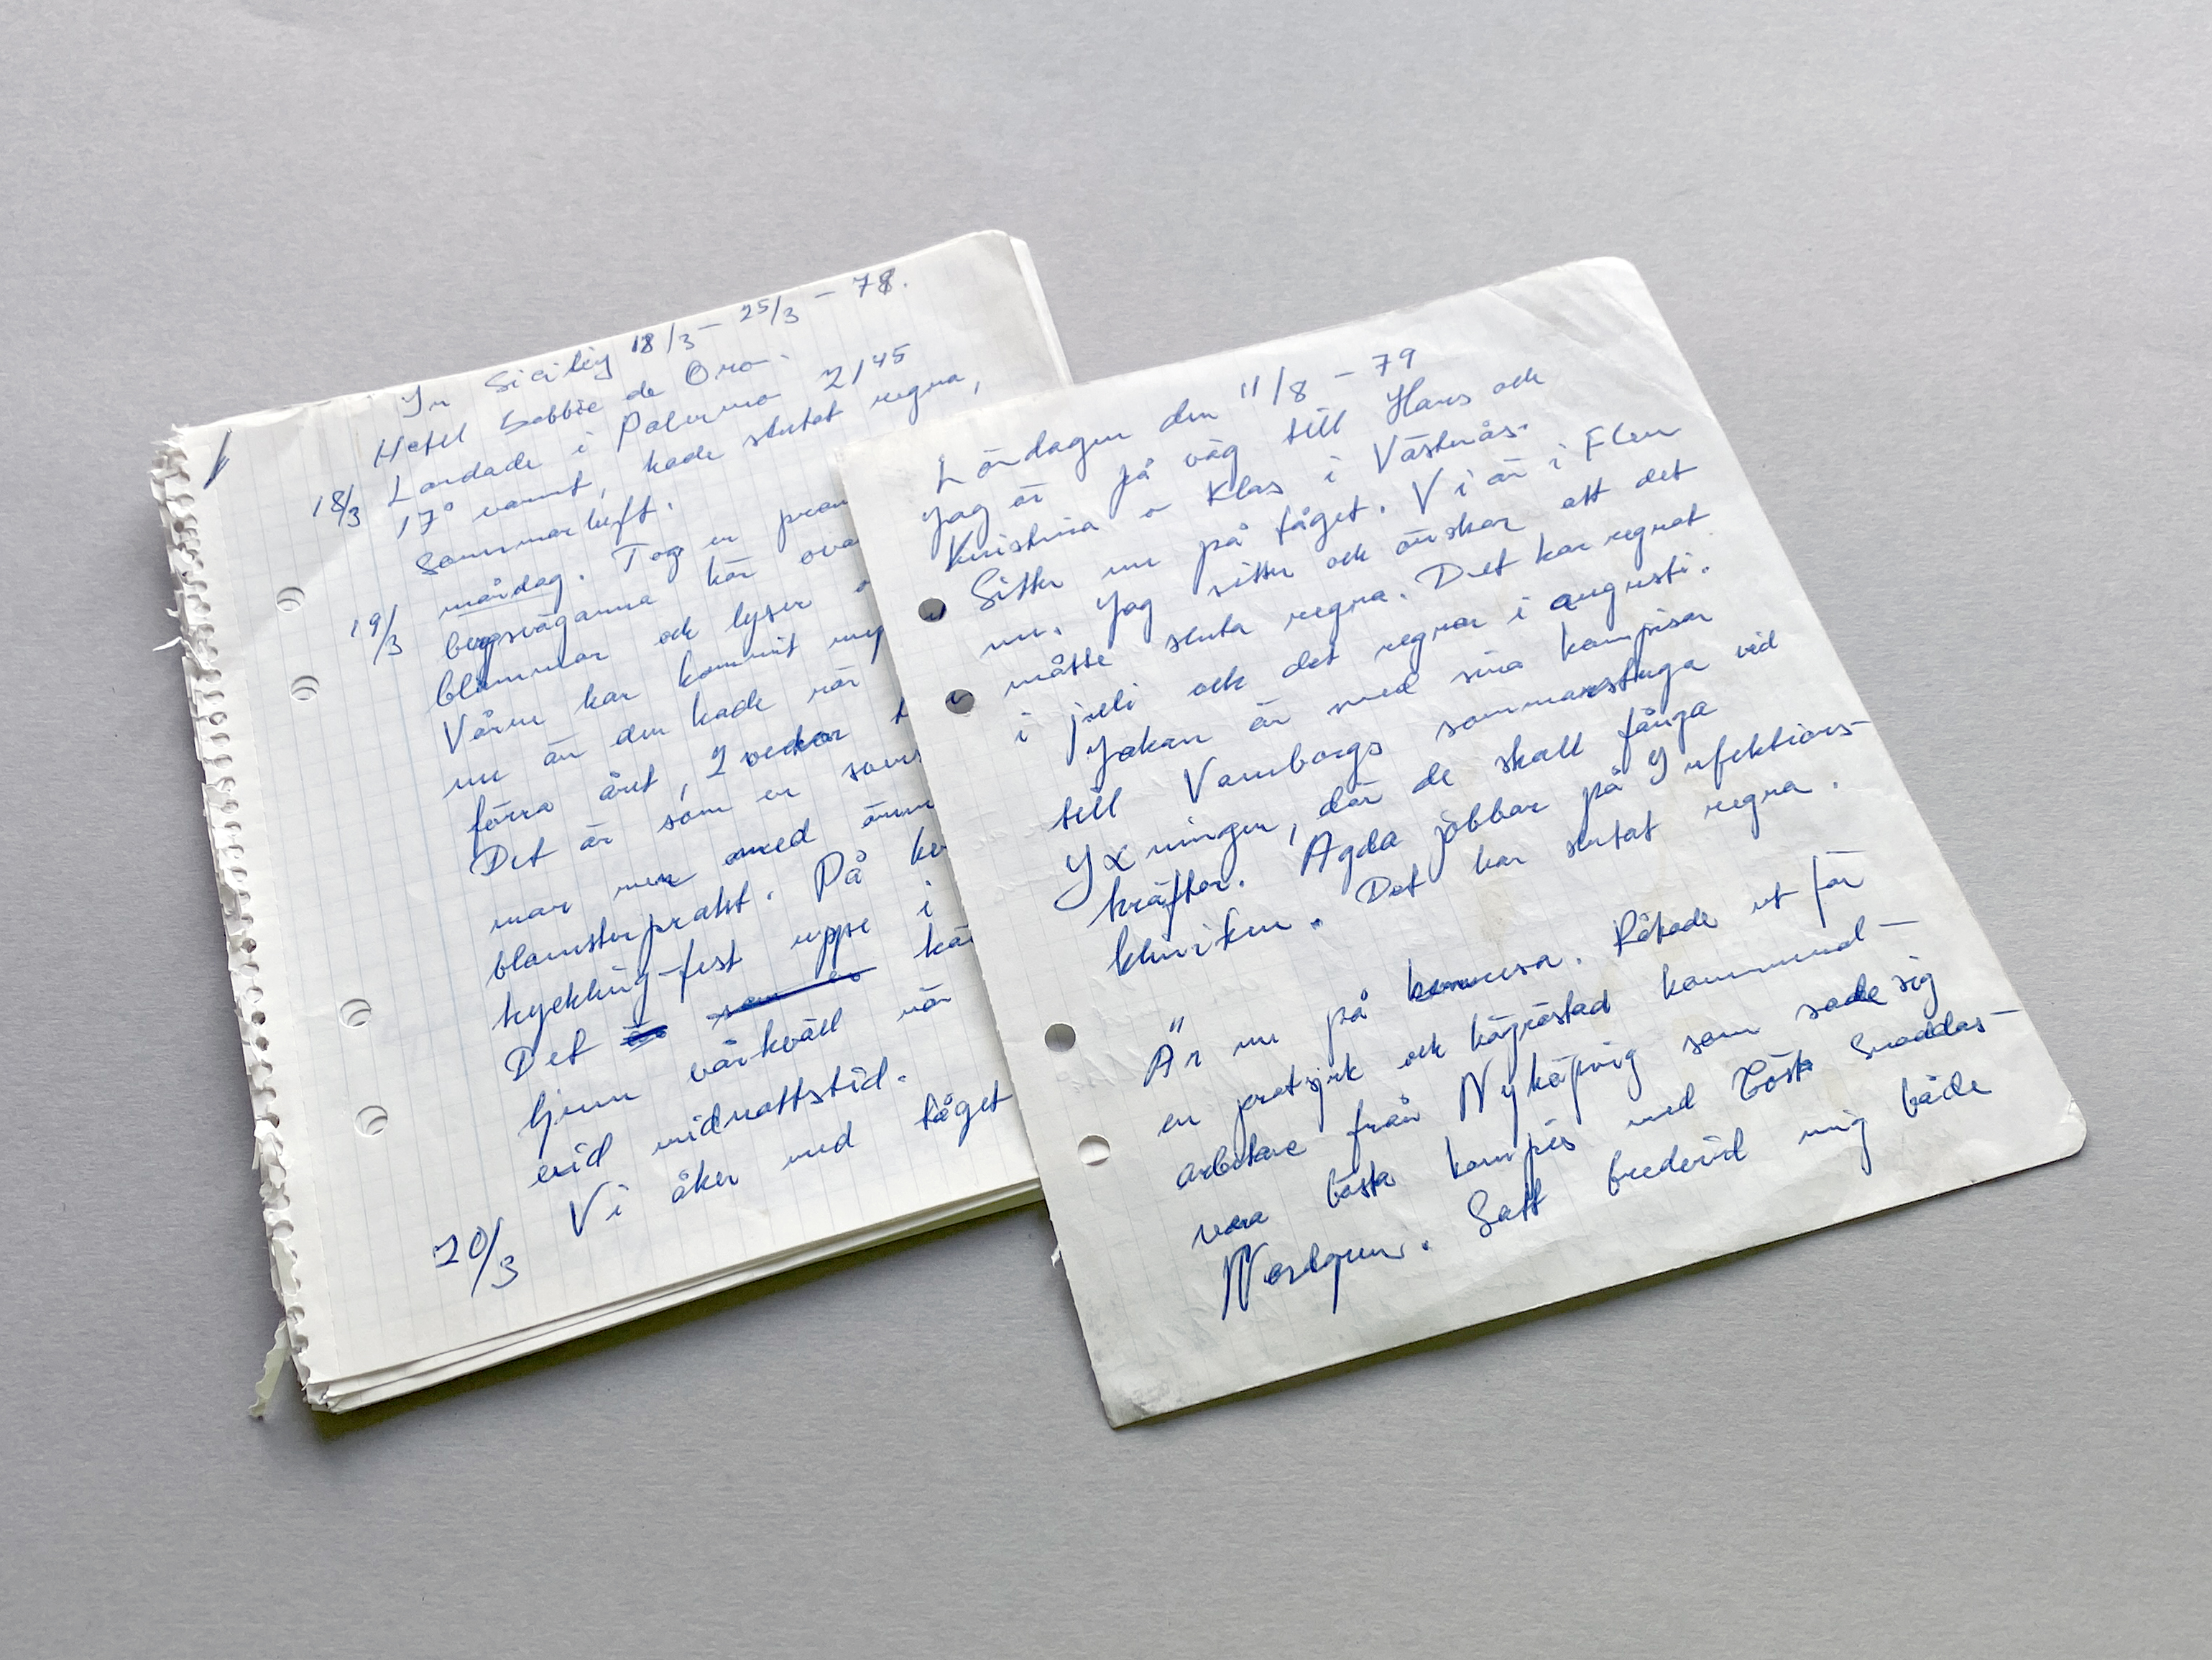 In Sicily 18/3 – 25/3 – 78.
Hotel Sabbie de Oro.
18/3 Landade i Palermo 2145
17° varmt, hade slutat regna,
sommarluft.
19/3 måndag. Tog en
bergsvägarna här
blommar och lyser
Våren har kommit
nu än den hade när
förra året, 2 veckor
Det är som en
mar men med
blomsterprakt. På
kyckling-fest uppe i
Det är som en
ljum vårkväll när
vid midnattstid.
20/3 Vi åker med tåget
Lördagen den 11/8 – 79
Jag är på väg till Hans och
Kristina o Klas i Västerås.
Sitter nu på tåget. Vi är i Flen
nu. Jag sitter och önskar att det
måtte sluta regna. Det har regnat
i juli och det regnar i augusti.
Johan är med sina kompisar
till Vamborgs sommarstuga vid
Yxningen, där de skall fånga
kräftor. Agda jobbar på Infektions-
kliniken. Det har slutat regna.
Är nu på hemresa. Råkade ut för
en pratsjuk och högröstad kommunal-
arbetare från Nyköping som sade sig
vara bästa kompis med Gösta Snoddas-
Nordgren. Satt bredvid mig både